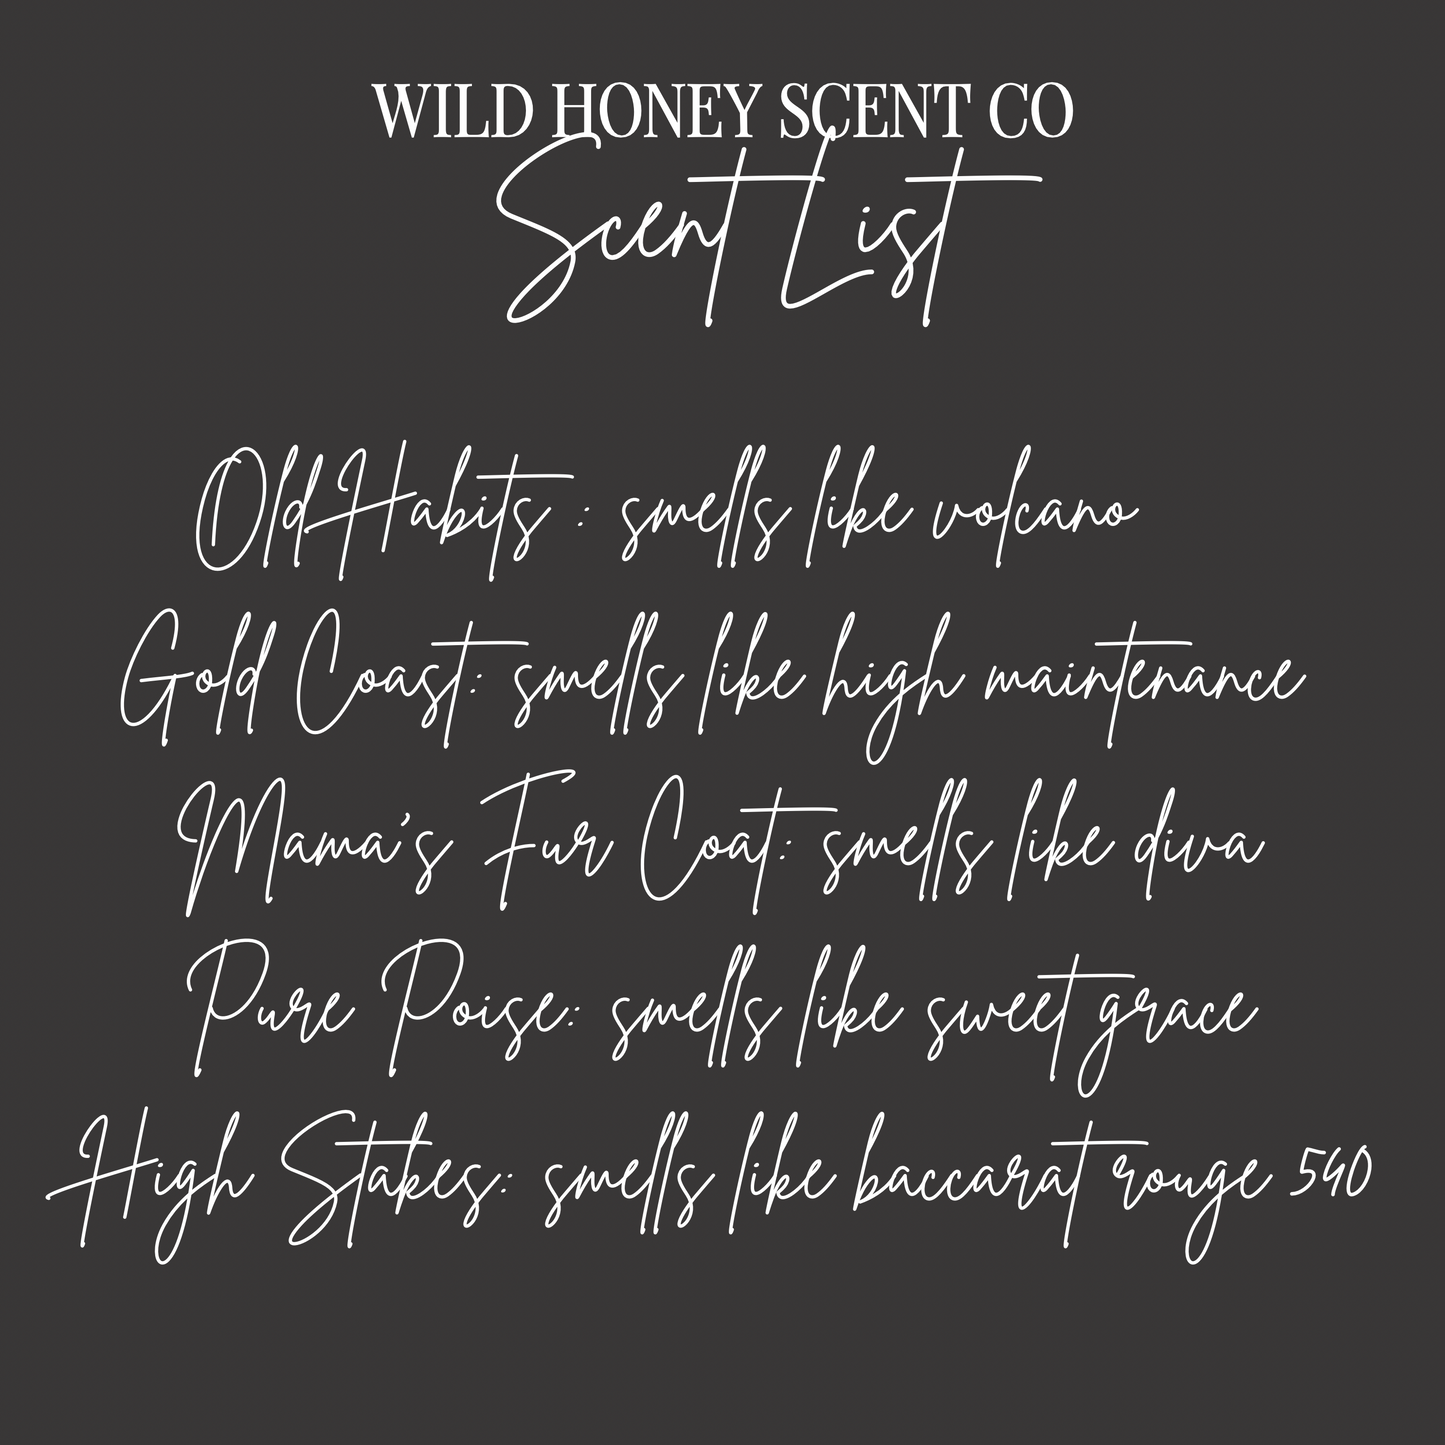 WILD HONEY SCENT CO
Scent List
Old Habits : smells like volcano
Gold Coast: smells like high maintenance
Mama's Fur Coat: smells like diva
Pure Poise: smells like sweet grace
High Stakes: smells like baccarat rouge 540